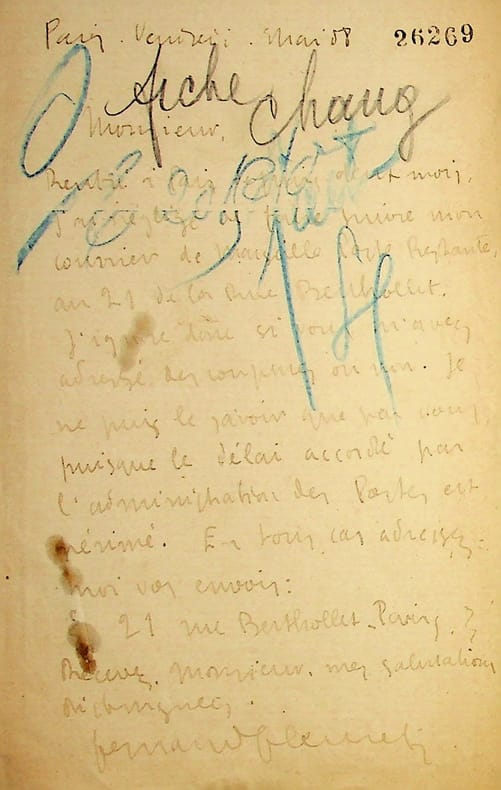 Paris. Vendredi. Mai 08 26269
Fiche Chang
Monsieur,
Rentré à Paris depuis deux mois,
J'ai négligé de faire suivre mon
courrier de Marseille Poste Restante,
au 21 de la Rue Berthollet.
J'ignore donc si vous m'avez
adressé des coupures ou non. Je
ne puis le savoir que par vous,
puisque le délai accordé par
l'administration des Postes est
périmé. En tous cas adressez-
moi vos envois:
21 rue Berthollet. Paris.
Recevez, Monsieur, mes salutations
distinguées.